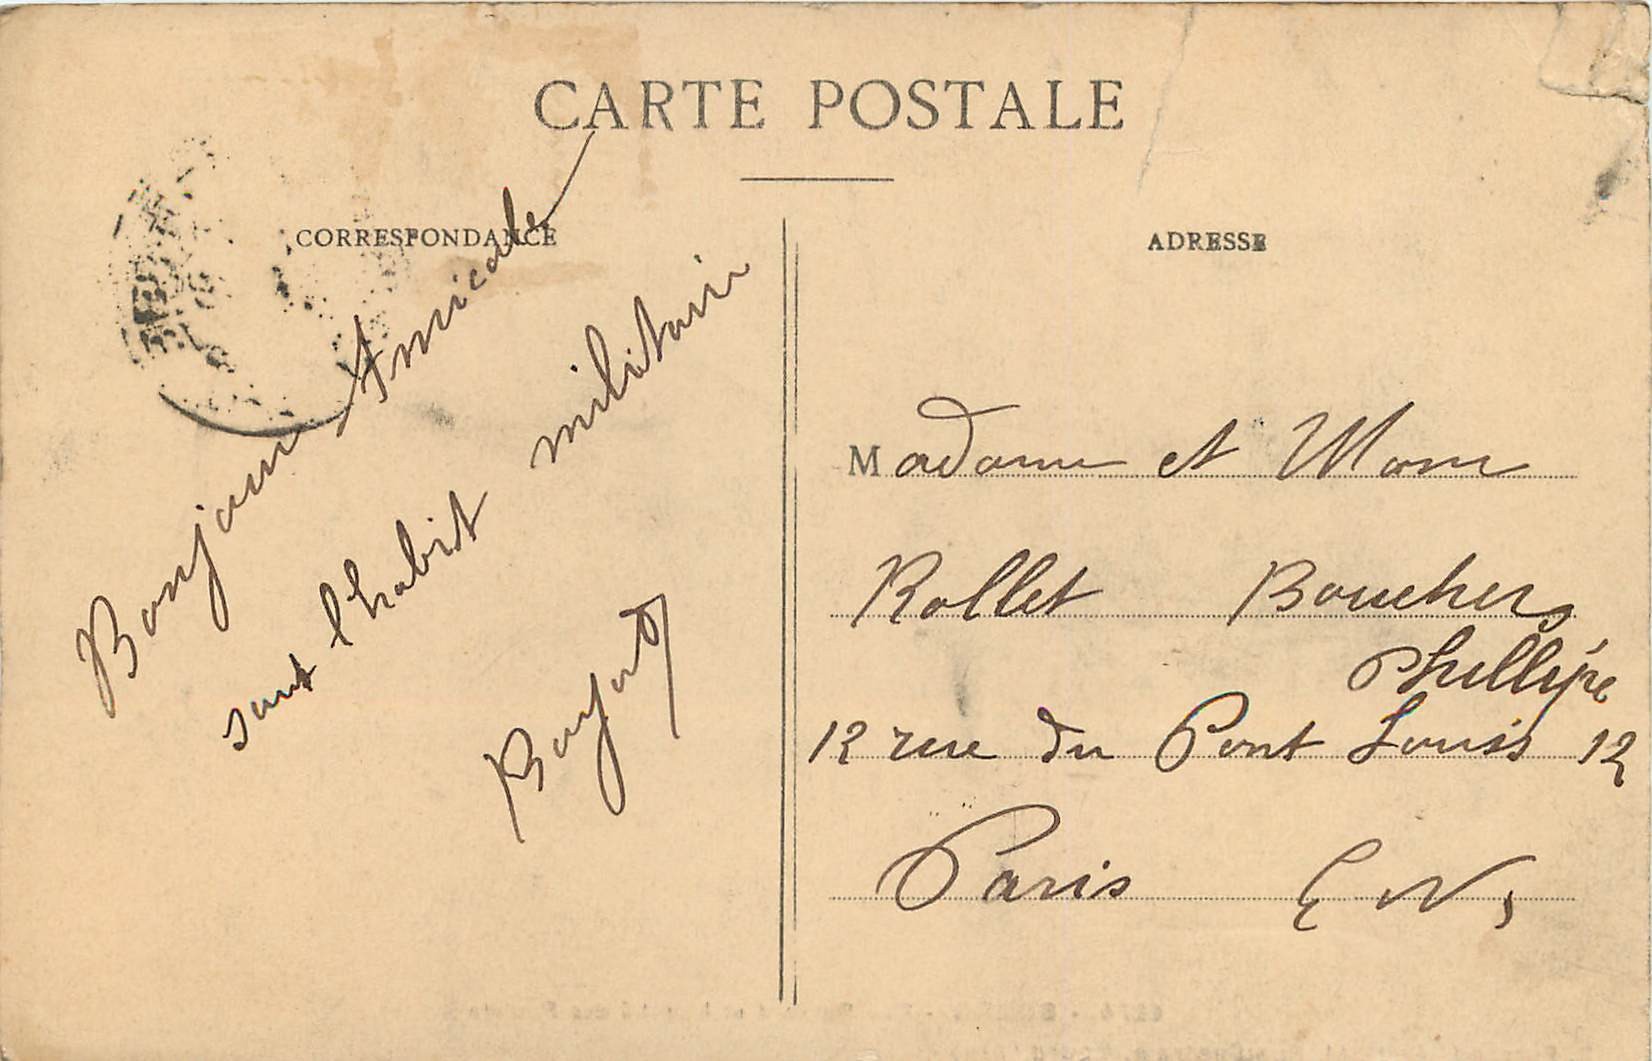 CARTE POSTALE
CORRESPONDANCE
ADRESSE
Bonjour Amicale
sous l'habit militair
Madame et Mons
Rollet Boucher
Phillipe
12 rue du Pont Louis 12
Paris